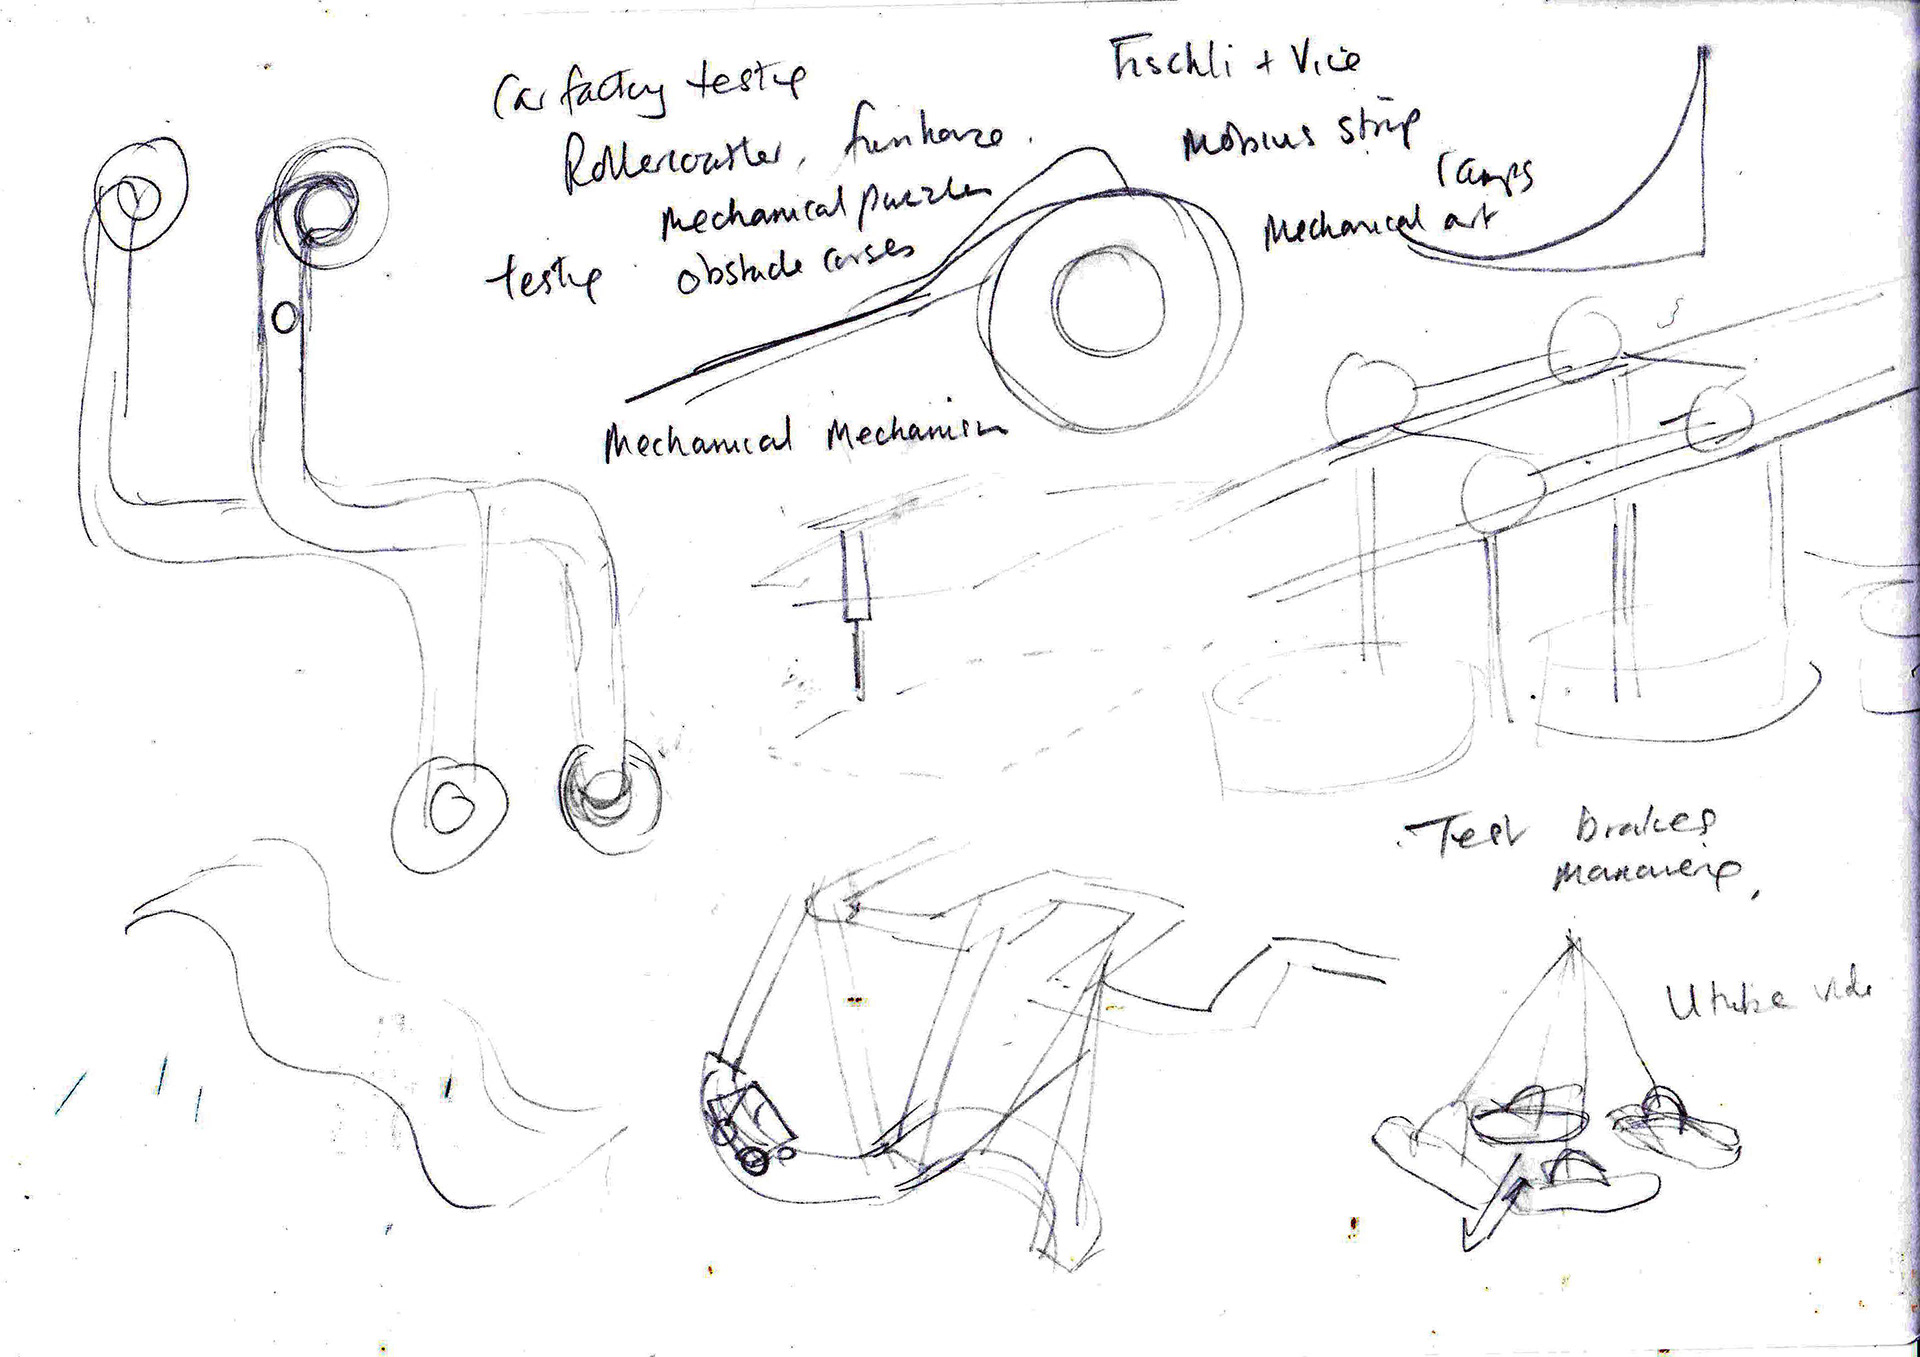 Car factory testing
Rollercoaster, funhouse.
Mechanical puzzles
testing obstacle corses
Mechanical Mechanism
Fischli + Vice
Mobius strip
ramps
Mechanical art
Test brakes
Utube vide